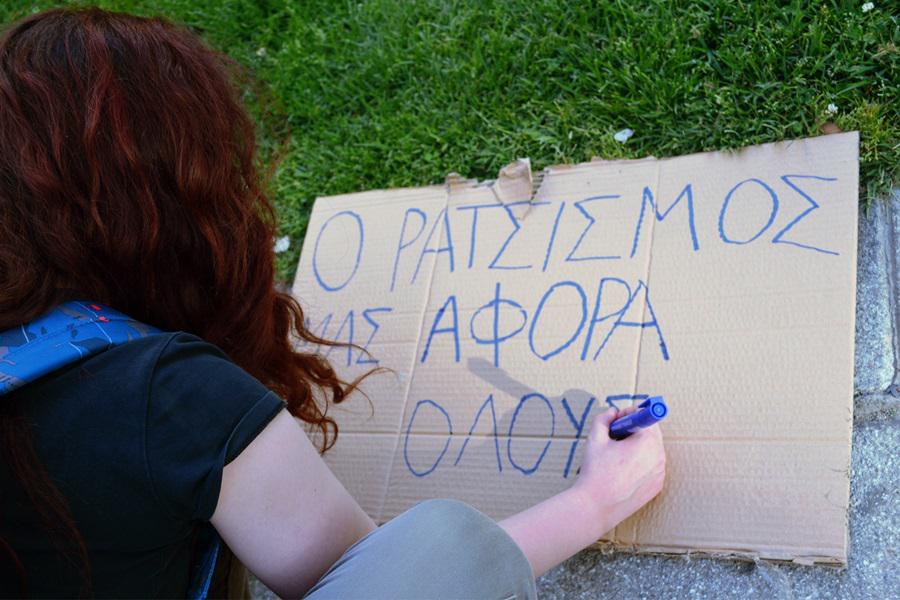 Ο ΡΑΤΣΙΣΜΟΣ
ΜΑΣ ΑΦΟΡΑ
ΟΛΟΥΣ